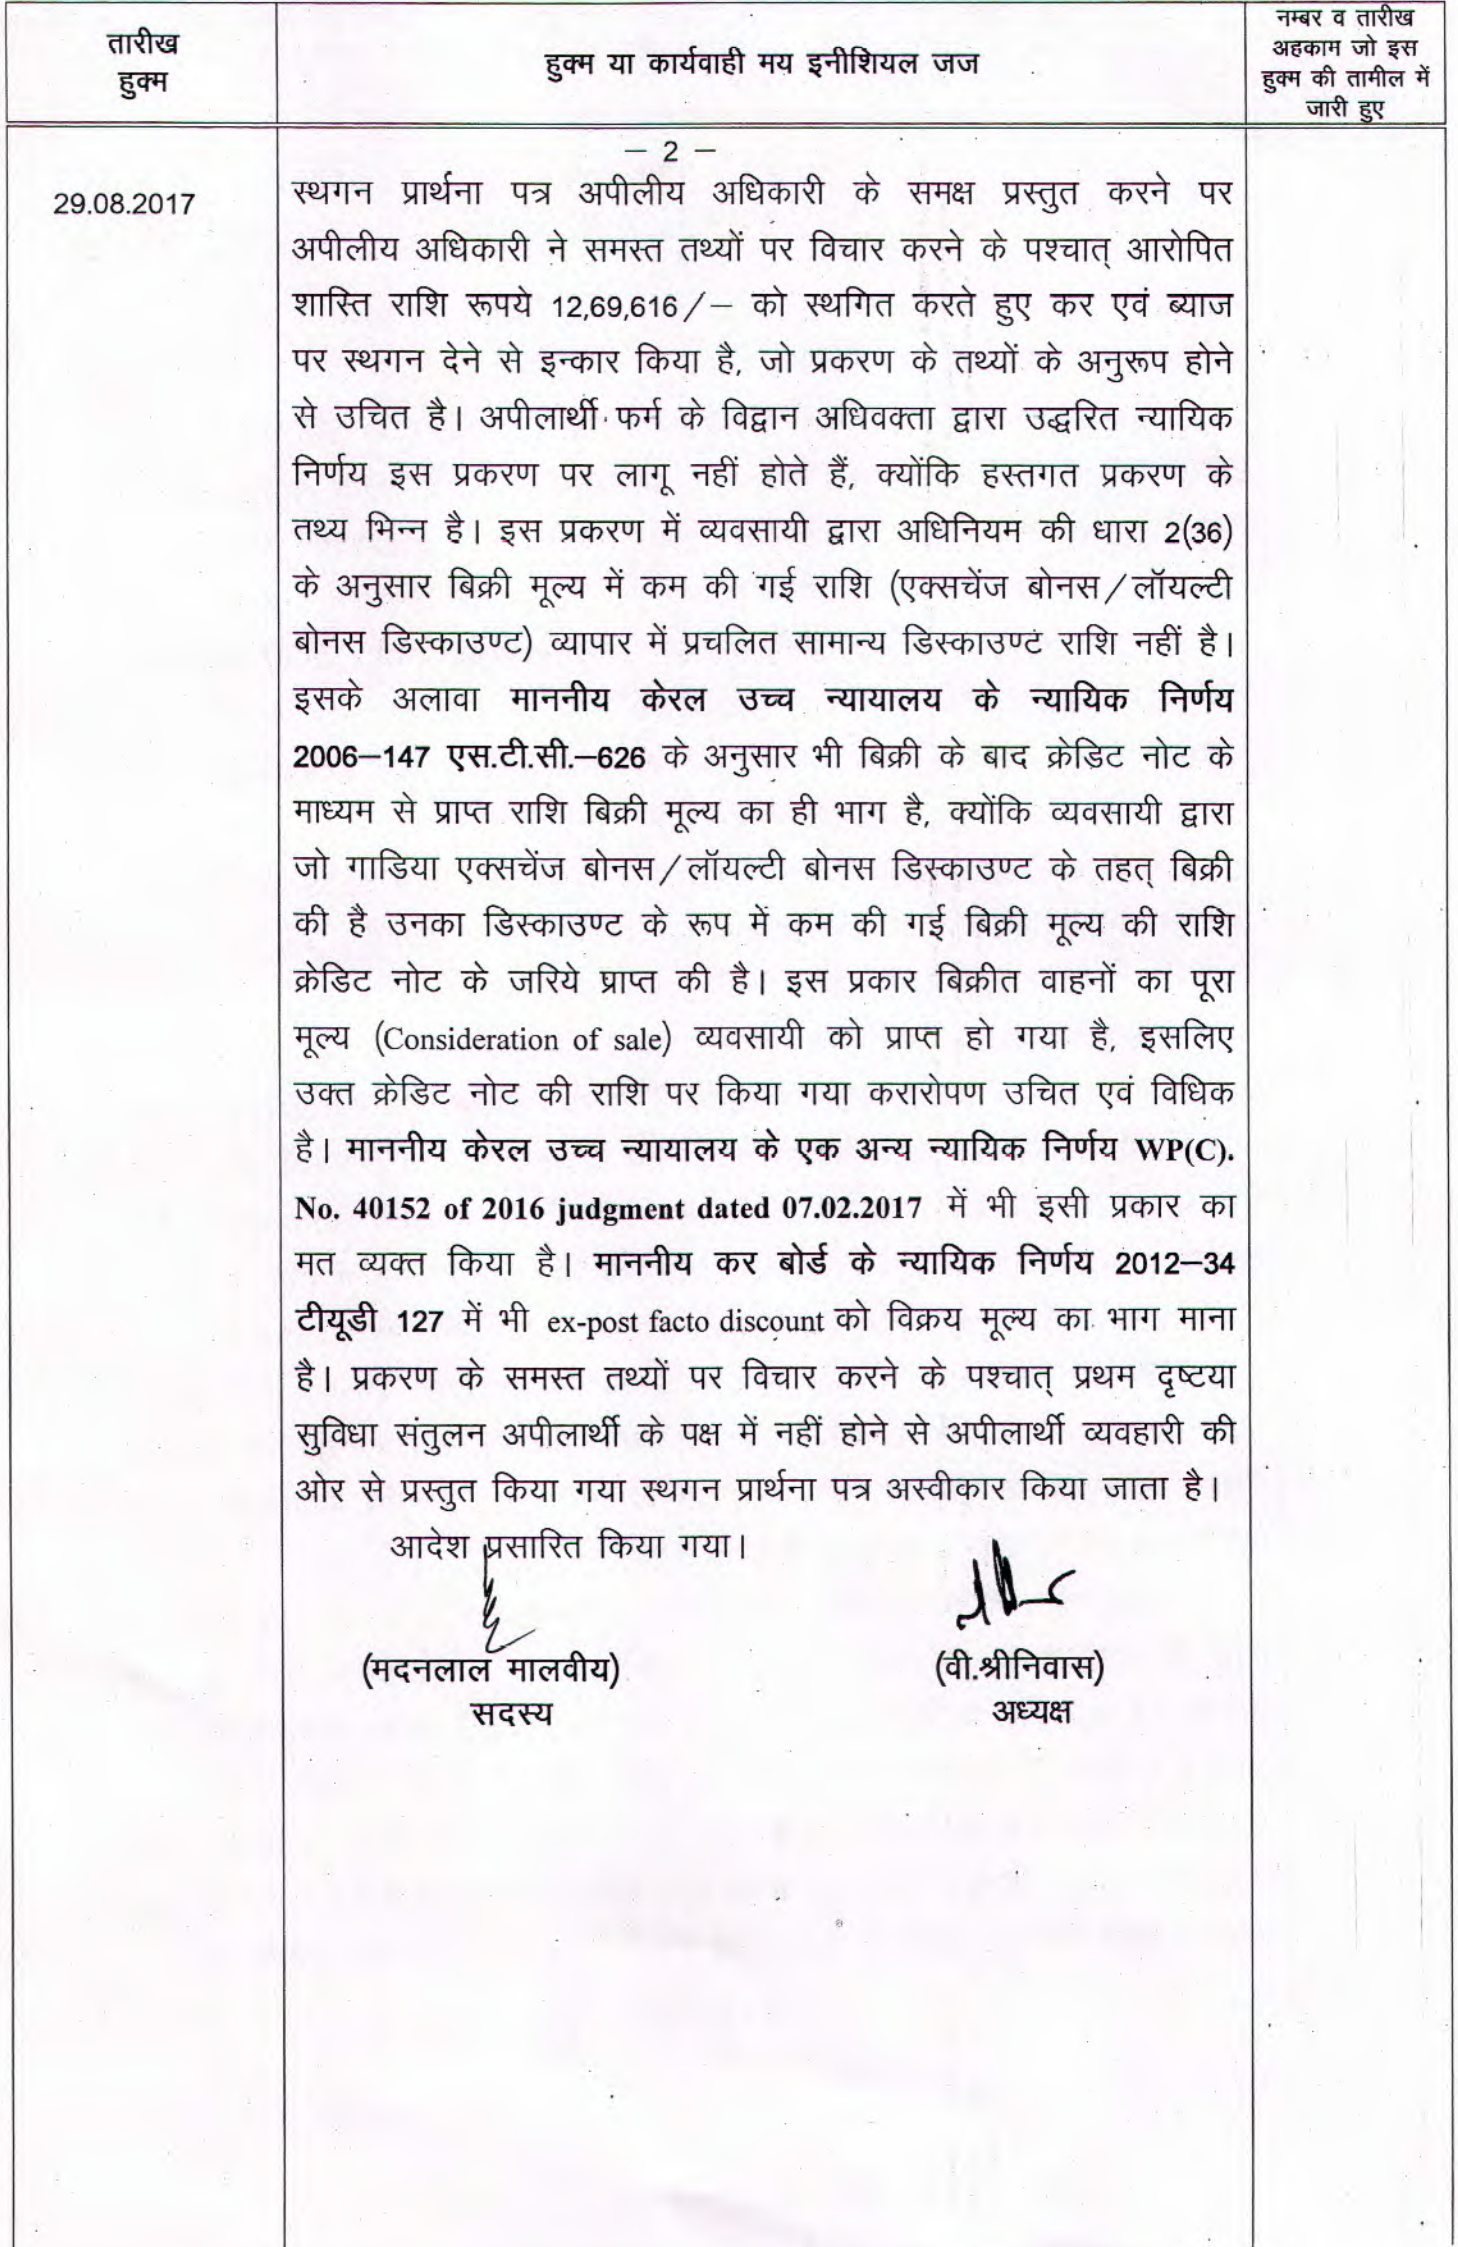 तारीख
हुक्म
हुक्म या कार्यवाही मय इनीशियल जज
नम्बर व तारीख
अहकाम जो इस
हुक्म की तामील में
जारी हुए
– 2 –
29.08.2017
स्थगन प्रार्थना पत्र अपीलीय अधिकारी के समक्ष प्रस्तुत करने पर
अपीलीय अधिकारी ने समस्त तथ्यों पर विचार करने के पश्चात् आरोपित
शास्ति राशि रूपये 12,69,616/– को स्थगित करते हुए कर एवं ब्याज
पर स्थगन देने से इन्कार किया है, जो प्रकरण के तथ्यों के अनुरूप होने
से उचित है। अपीलार्थी फर्म के विद्वान अधिवक्ता द्वारा उद्धरित न्यायिक
निर्णय इस प्रकरण पर लागू नहीं होते हैं, क्योंकि हस्तगत प्रकरण के
तथ्य भिन्न है। इस प्रकरण में व्यवसायी द्वारा अधिनियम की धारा 2(36)
के अनुसार बिक्री मूल्य में कम की गई राशि (एक्सचेंज बोनस/लॉयल्टी
बोनस डिस्काउण्ट) व्यापार में प्रचलित सामान्य डिस्काउण्ट राशि नहीं है।
इसके अलावा माननीय केरल उच्च न्यायालय के न्यायिक निर्णय
2006–147 एस.टी.सी.–626 के अनुसार भी बिक्री के बाद क्रेडिट नोट के
माध्यम से प्राप्त राशि बिक्री मूल्य का ही भाग है, क्योंकि व्यवसायी द्वारा
जो गाडिया एक्सचेंज बोनस/लॉयल्टी बोनस डिस्काउण्ट के तहत् बिक्री
की है उनका डिस्काउण्ट के रूप में कम की गई बिक्री मूल्य की राशि
क्रेडिट नोट के जरिये प्राप्त की है। इस प्रकार बिक्रीत वाहनों का पूरा
मूल्य (Consideration of sale) व्यवसायी को प्राप्त हो गया है, इसलिए
उक्त क्रेडिट नोट की राशि पर किया गया करारोपण उचित एवं विधिक
है। माननीय केरल उच्च न्यायालय के एक अन्य न्यायिक निर्णय WP(C).
No. 40152 of 2016 judgment dated 07.02.2017 में भी इसी प्रकार का
मत व्यक्त किया है। माननीय कर बोर्ड के न्यायिक निर्णय 2012–34
टीयूडी 127 में भी ex-post facto discount को विक्रय मूल्य का भाग माना
है। प्रकरण के समस्त तथ्यों पर विचार करने के पश्चात् प्रथम दृष्टया
सुविधा संतुलन अपीलार्थी के पक्ष में नहीं होने से अपीलार्थी व्यवहारी की
ओर से प्रस्तुत किया गया स्थगन प्रार्थना पत्र अस्वीकार किया जाता है।
आदेश प्रसारित किया गया।
(मदनलाल मालवीय)
सदस्य
(वी.श्रीनिवास)
अध्यक्ष